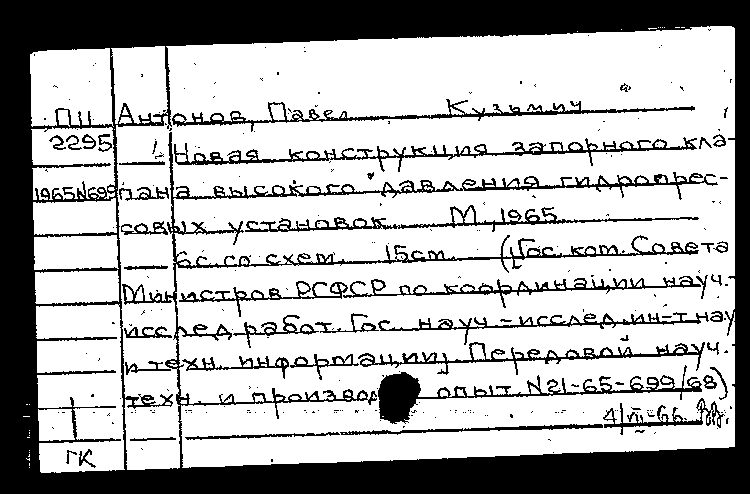 ПII Антонов, Павел Кузьмич
2295 Новая конструкция запорного кла-
1965N699 пана высокого давления гидропрес-
совых установок. М., 1965
6с. со схем. 15см. (Гос. ком. Совета
Министров РСФСР по координации науч.-
исслед. работ. Гос. науч-исслед. ин-т науч
и техн. информации]. Передовой науч.-
техн. и производ опыт. N21-65-699/68)
ГК